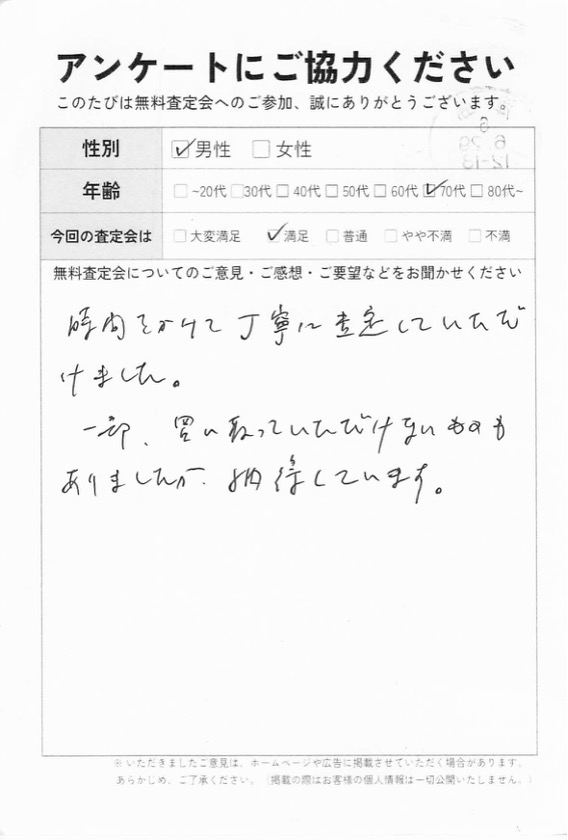 アンケートにご協力ください
このたびは無料査定会へのご参加、誠にありがとうございます。
性別 ☑男性 □女性
年齢 □~20代 □30代 □40代 □50代 □60代 ☑70代 □80代~
今回の査定会は □大変満足 ☑満足 □普通 □やや不満 □不満
無料査定会についてのご意見・ご感想・ご要望などをお聞かせください
時間をかけて丁寧に査定していただ
けました。
一部、買い取っていただけないものも
ありましたが、納得しています。
※いただきましたご意見は、ホームページや広告に掲載させていただく場合があります。
あらかじめ、ご了承ください。（掲載の際はお客様の個人情報は一切公開いたしません。）